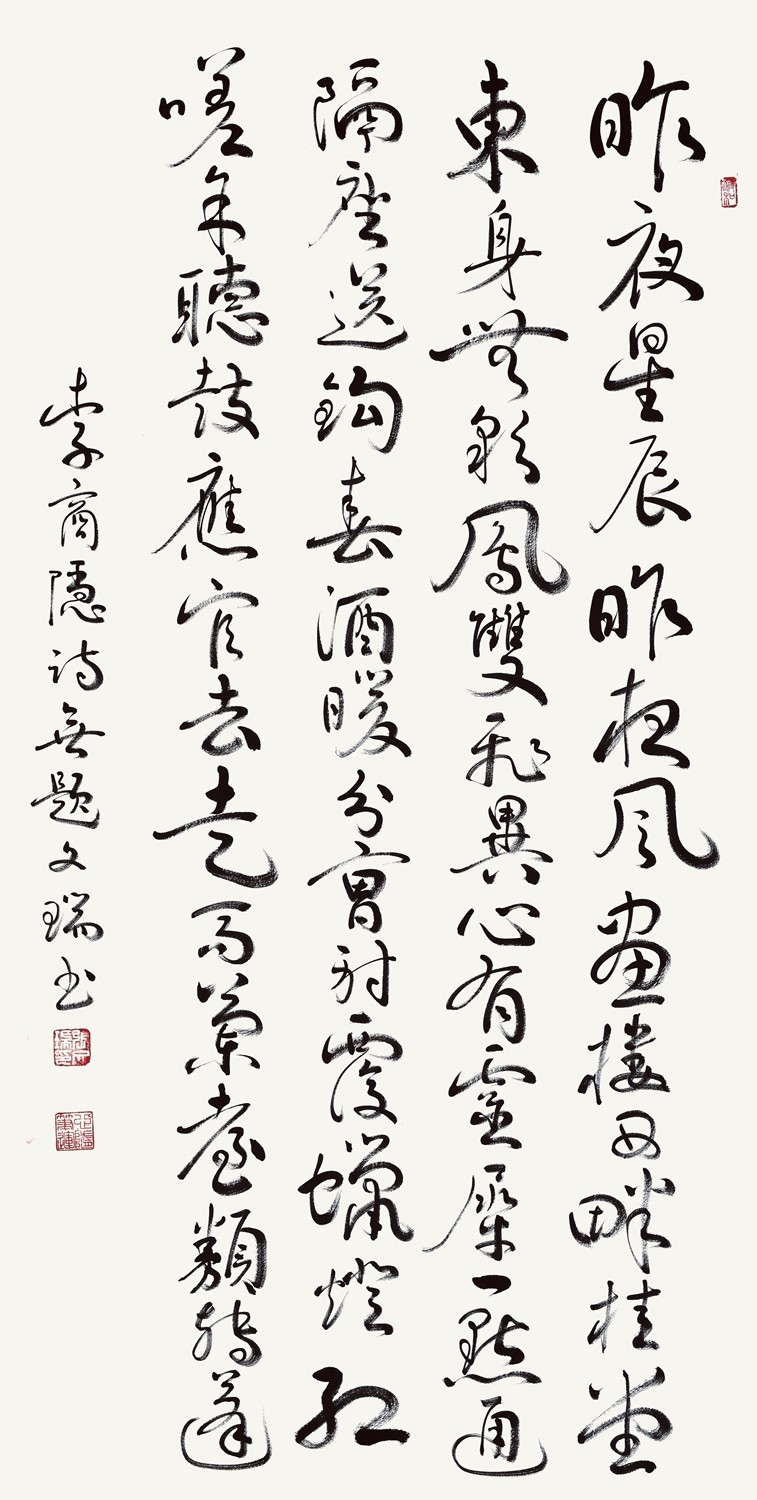 昨夜星辰昨夜風畫樓西畔桂堂
東身無彩鳳雙飛翼心有靈犀一點通
隔座送鈎春酒暖分曹射覆蠟燈紅
嗟余聽鼓應官去走馬蘭臺類轉蓬
李商隱詩無題文瑞书